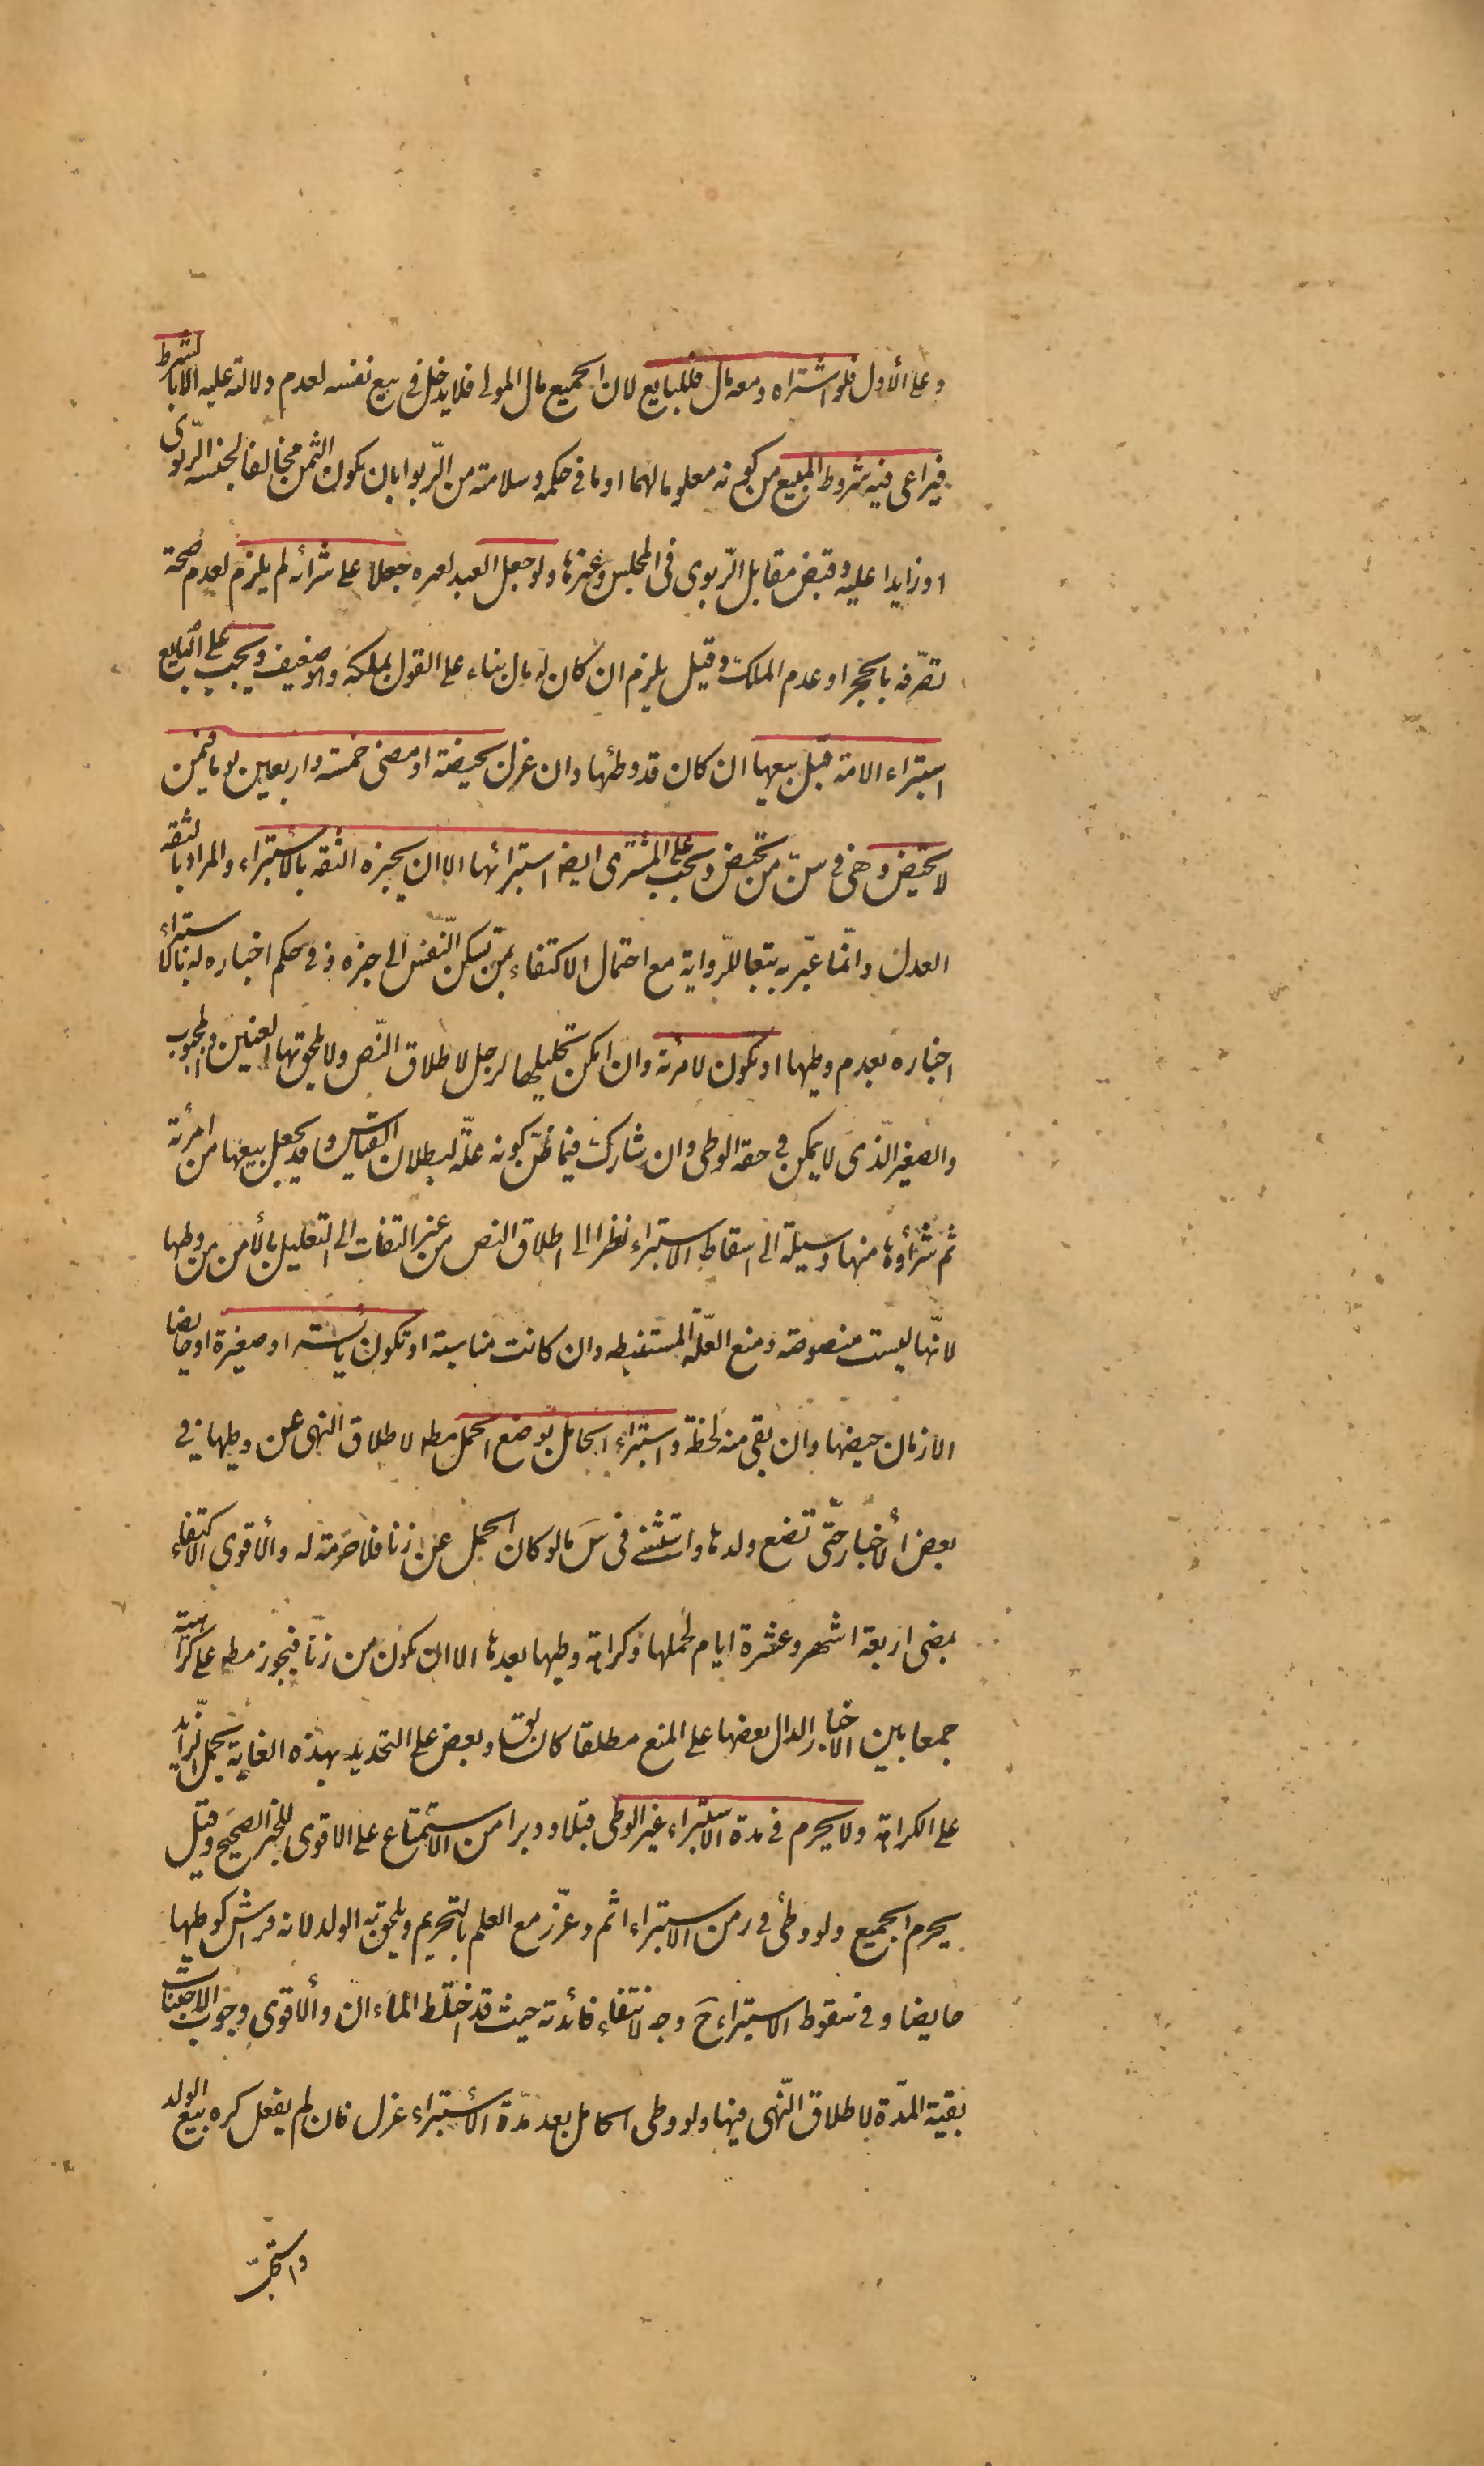 وعلى الأول فلو اشتراه ومعه مال فللبايع لان الجميع مال المولى فلا يدخل فى بيع نفسه لعدم دلالته عليه الا بالشرط
فيراعى فيه شروط المبيع من كونه معلوما لهما او ما فى حكمه وسلامته من الرّبوا بان يكون الثمن مخالفا لجنسه الرّبوى
او زايدا عليه وقبض مقابل الرّبوى فى المجلس وغيرها ولو جعل العبد لغيره جعلا على شرائه لم يلزم لعدم صحة
تصرّفه بالحجر او عدم الملك وقيل يلزم ان كان له مال بناء على القول بملكه وهو ضعيف ويجب على البايع
استبراء الامة قبل بيعها ان كان قد وطئها وان عزل بحيضة او مضى خمسة واربعين يوما فيمن
لا تحيض وهى فى سنّ من تحيض ويجب على المشترى ايضا استبرائها الا ان يخبره الثقة بالأستبراء والمراد بالثقه
العدل وانّما عبّر به تبعا للرّواية مع احتمال الاكتفاء بمن تسكن النّفس الى خبره وفى حكم اخباره له بالاستبراء
اخباره بعدم وطيها او تكون لامرئة وان امكن تحليلها لرجل لاطلاق النّص ولا يلحق بها العنين والمجبوب
والصغير الّذى لا يمكن فى حقه الوطى وان شارك فيما ظنّ كونه علّة لبطلان القياس وقد يجعل بيعها من امرئة
ثم شراؤها منها وسيلة الى اسقاط الاستبراء نظرا الى اطلاق النص من غير التفات الى التعليل بالأمن من وطيها
لانّها ليست منصوصة ومنع العلّة المستنبطه وان كانت مناسبة او تكون يائسته او صغيرة او حايضا
الا زمان حيضها وان بقى منه لحظة واستبراء الحامل بوضع الحمل مطه لاطلاق النهى عن وطيها فى
بعض الأخبار حتّى تضع ولدها واستثنى فى سَ ما لو كان الحمل عن زنا فلا حرمة له والأقوى الاكتفاء
بمضى اربعة اشهر وعشرة ايام لحملها وكراهة وطيها بعدها الا ان يكون من زنا فيجوز مطه على كراهية
جمعا بين الاخبار الدال بعضها على المنع مطلقا كالسابق وبعض على التحديد بهذه الغاية بحمل الزّايد
على الكراهة ولا يحرم فى مدة الاستبراء غير الوطى قبلا ودبرا من الاستمتاع على الاقوى للخبر الصحيح وقيل
يحرم الجميع ولو وطئ فى زمن الاستبراء اثم وعزّر مع العلم بالتحريم ويلحق به الولد لانه فراش كوطيها
حايضا وفى سقوط الاستبراء حَ وجه لانتفاء فائدته حيث قد اختلط الماءان والأقوى وجوب الاجتناب
بقية المدّة لاطلاق النّهى فيها ولو وطى الحامل بعد مدّة الأستبراء عزل فان لم يفعل كره بيع الولد
واستحبّ